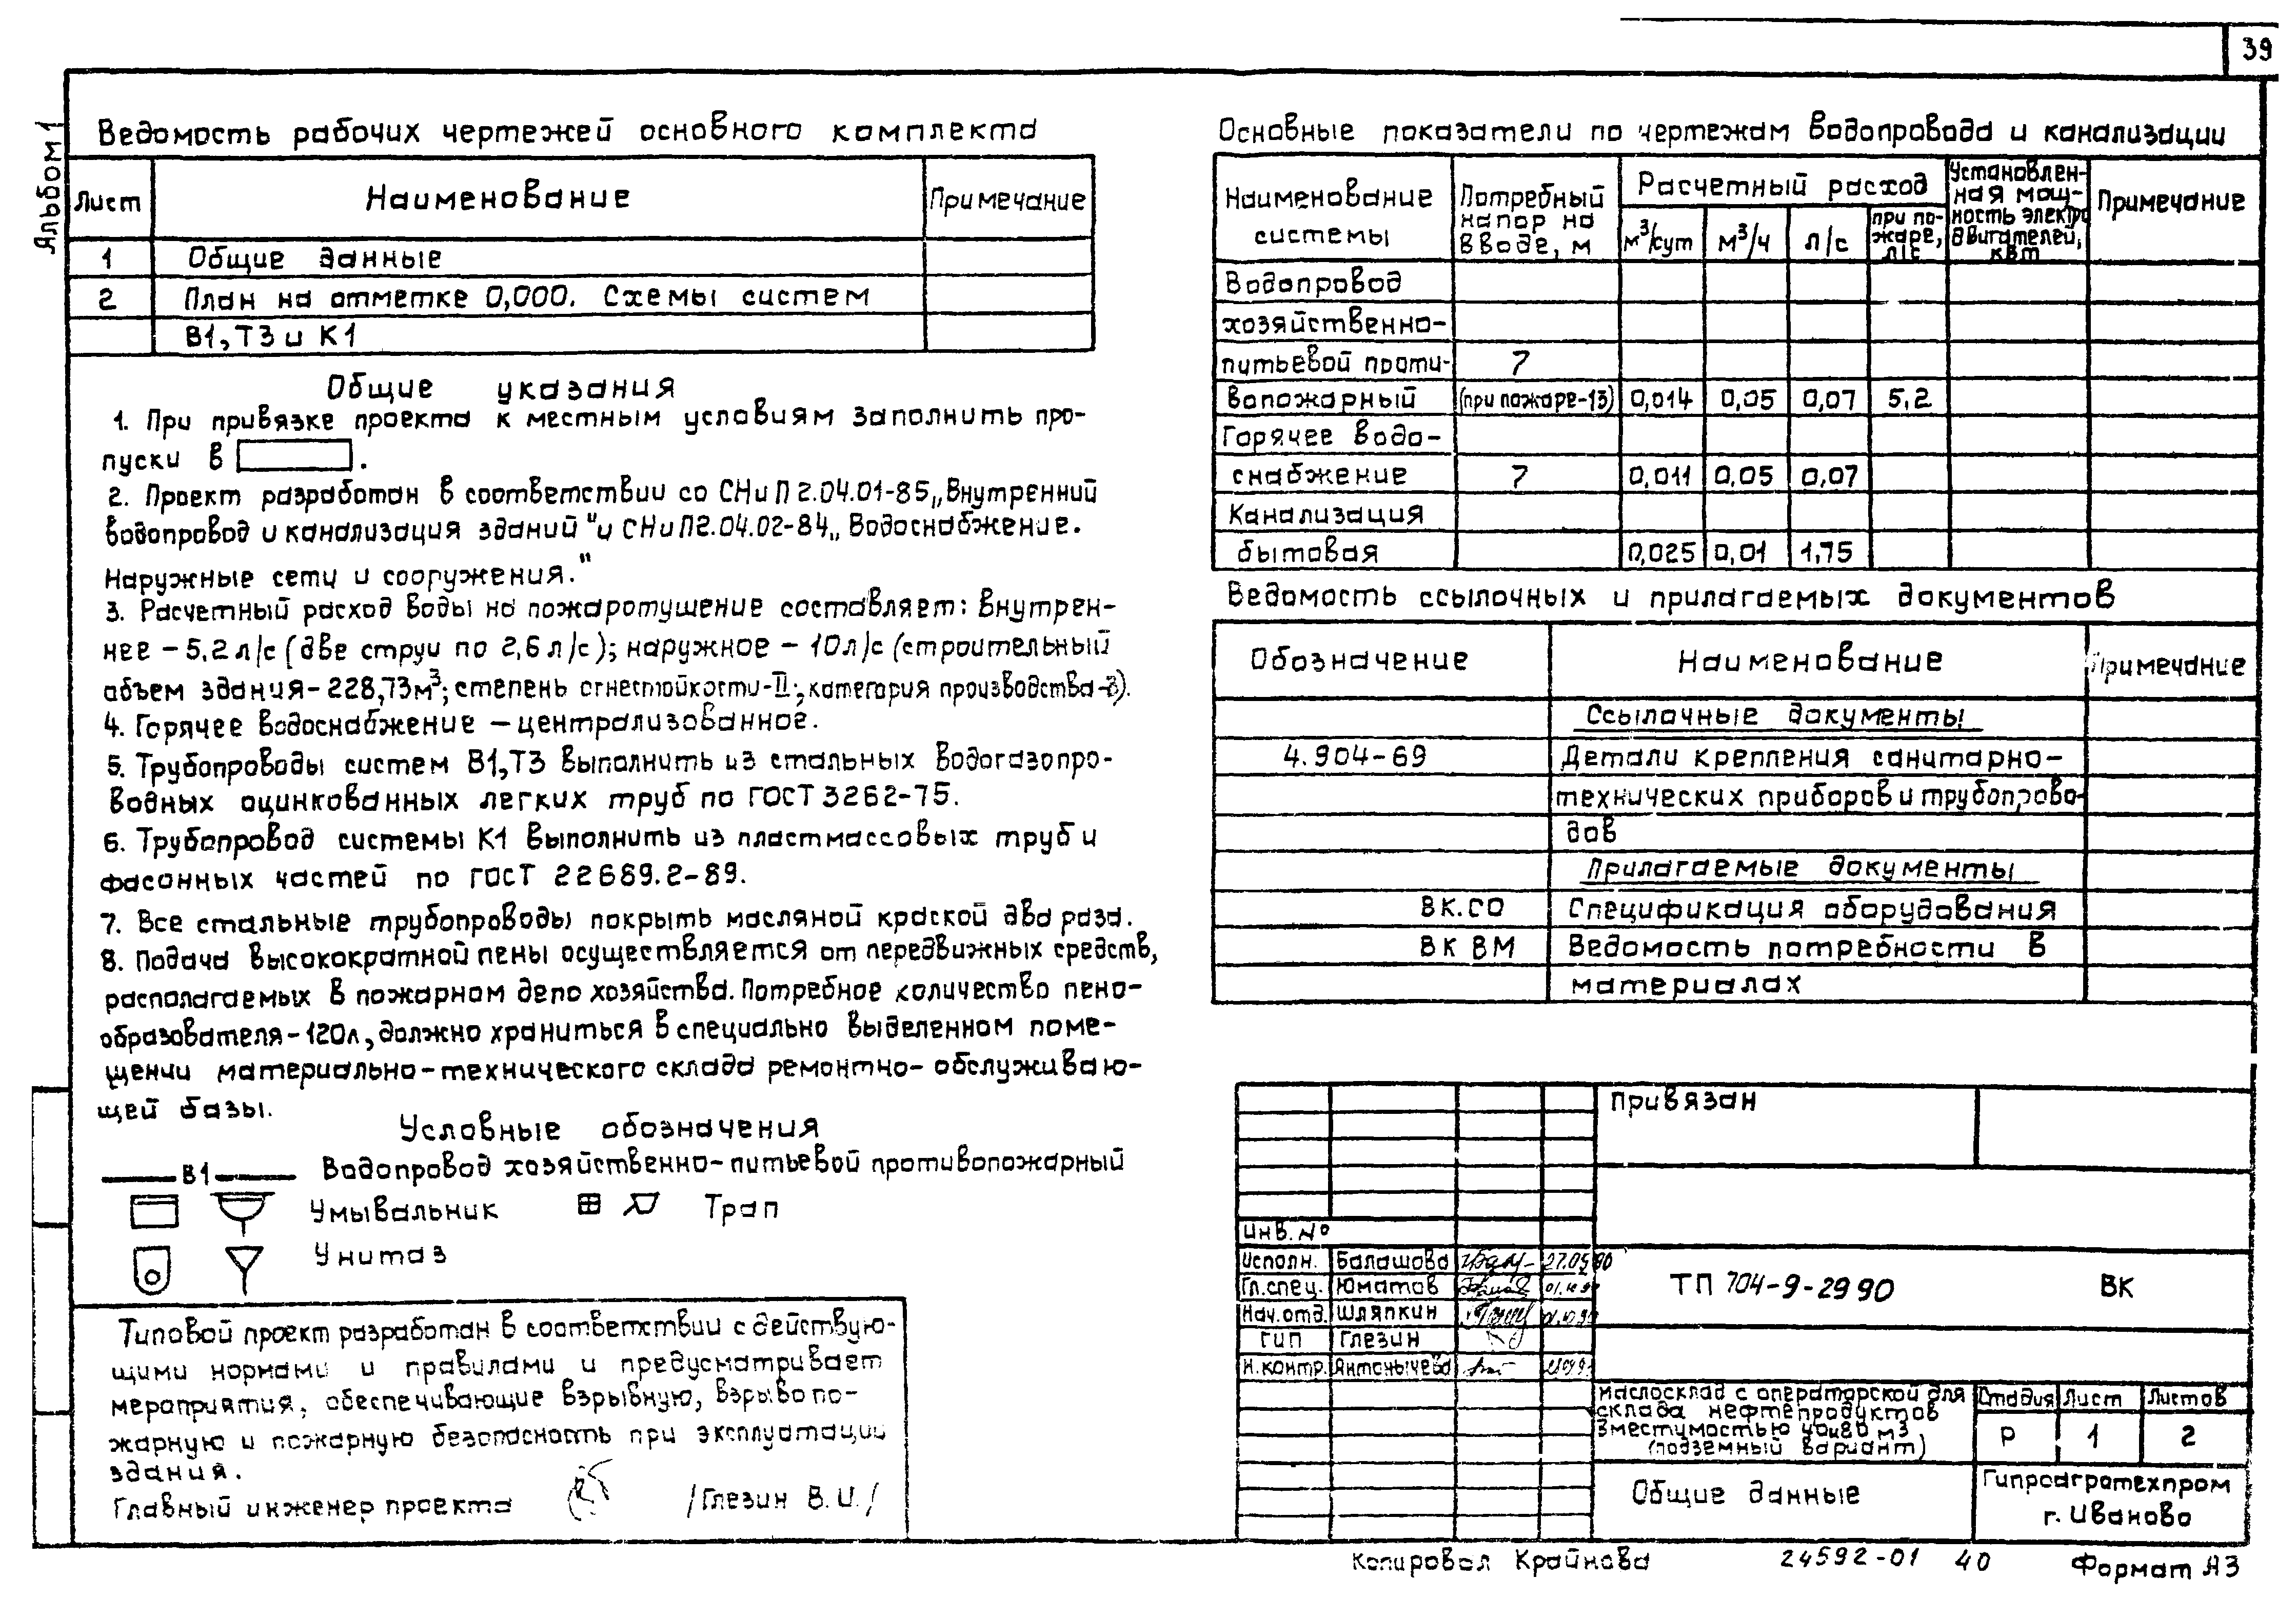 39
Альбом 1
Ведомость рабочих чертежей основного комплекта
Лист Наименование Примечание
1 Общие данные
2 План на отметке 0,000. Схемы систем
В1, Т3 и К1
Общие указания
1. При привязке проекта к местным условиям заполнить про-
пуски в .
2. Проект разработан в соответствии со СНиП 2.04.01-85 „Внутренний
водопровод и канализация зданий" и СНиП 2.04.02-84 „Водоснабжение.
Наружные сети и сооружения."
3. Расчетный расход воды на пожаротушение составляет: внутрен-
нее - 5,2 л/с (две струи по 2,6 л/с); наружное - 10 л/с (строительный
объем здания - 228,73 м³; степень огнестойкости - II; категория производства -В).
4. Горячее водоснабжение - централизованное.
5. Трубопроводы систем В1, Т3 выполнить из стальных водогазопро-
водных оцинкованных легких труб по ГОСТ 3262-75.
6. Трубопровод системы К1 выполнить из пластмассовых труб и
фасонных частей по ГОСТ 22689.2-89.
7. Все стальные трубопроводы покрыть масляной краской два раза.
8. Подача высокократной пены осуществляется от передвижных средств,
располагаемых в пожарном депо хозяйства. Потребное количество пено-
образователя - 120л, должно храниться в специально выделенном поме-
щении материально-технического склада ремонтно-обслуживаю-
щей базы.
Условные обозначения
В1 Водопровод хозяйственно-питьевой противопожарный
Умывальник Трап
Унитаз
Типовой проект разработан в соответствии с действую-
щими нормами и правилами и предусматривает
мероприятия, обеспечивающие взрывную, взрывопо-
жарную и пожарную безопасность при эксплуатации
здания.
Главный инженер проекта /Глезин В.И./
Основные показатели по чертежам водопровода и канализации
Наименование системы Потребный напор на вводе, м Расчетный расход Установлен-ная мощ-ность электродвигателей, квт Примечание
м³/сут м³/ч л/с при по-жаре, л/с
Водопровод
хозяйственно-
питьевой проти- 7
вопожарный (при пожаре-13) 0,014 0,05 0,07 5,2
Горячее водо-
снабжение 7 0,011 0,05 0,07
Канализация
бытовая 0,025 0,01 1,75
Ведомость ссылочных и прилагаемых документов
Обозначение Наименование Примечание
Ссылочные документы
4.904-69 Детали крепления санитарно-
технических приборов и трубопрово-
дов
Прилагаемые документы
ВК.СО Спецификация оборудования
ВК ВМ Ведомость потребности в
материалах
Привязан
Инв. №
Исполн. Балашова 27.09.90
Гл.спец. Юматов
Нач.отд. Шляпкин
ГИП Глезин
Н.контр. Антонычева
ТП 704-9-29 90 ВК
Маслосклад с операторской для
склада нефтепродуктов
вместимостью 40и80 м3
(подземный вариант)
Стадия Лист Листов
Р 1 2
Общие данные
Гипроагротехпром
г. Иваново
Копировал Крайнова 24592-01 40 Формат А3